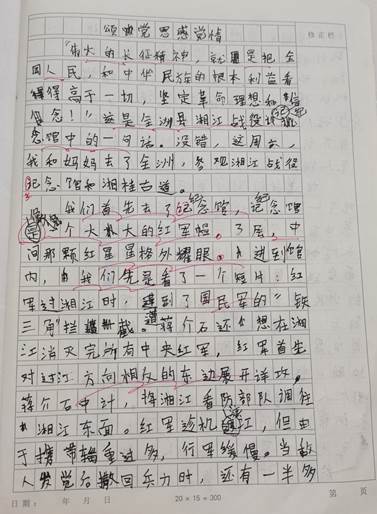 颂党恩感党情
修正栏
“伟大的长征精神，就是把全
国人民，和中华民族的根本利益看
得高于一切，坚定革命理想和
念！”这是全洲县湘江战役纪
念馆中的一句话。没错，这周六，
我和妈妈去了全洲，参观湘江战役
纪念馆和湘桂古道。
我们首先去了纪念馆，纪念馆
是个大大的红军帽。了层，中
间那颗红星星格外耀眼。进到馆
内，我们先是看了一个短片：红
军过湘江时，遭到了国民军的“铁
三角”拦截。蒋介石还想在湘
江消灭完所有中央红军，红军首先
对过江方向相反的东边展开洋攻，
蒋介石中计，将湘江看防部队调往
湘江东面。红军趁机渡江，但由
于携带辎重过多，行军缓慢。当敌
人发觉后撤回兵力时，还有一半多
日期： 年 月 日
20 × 15 = 300
第 页